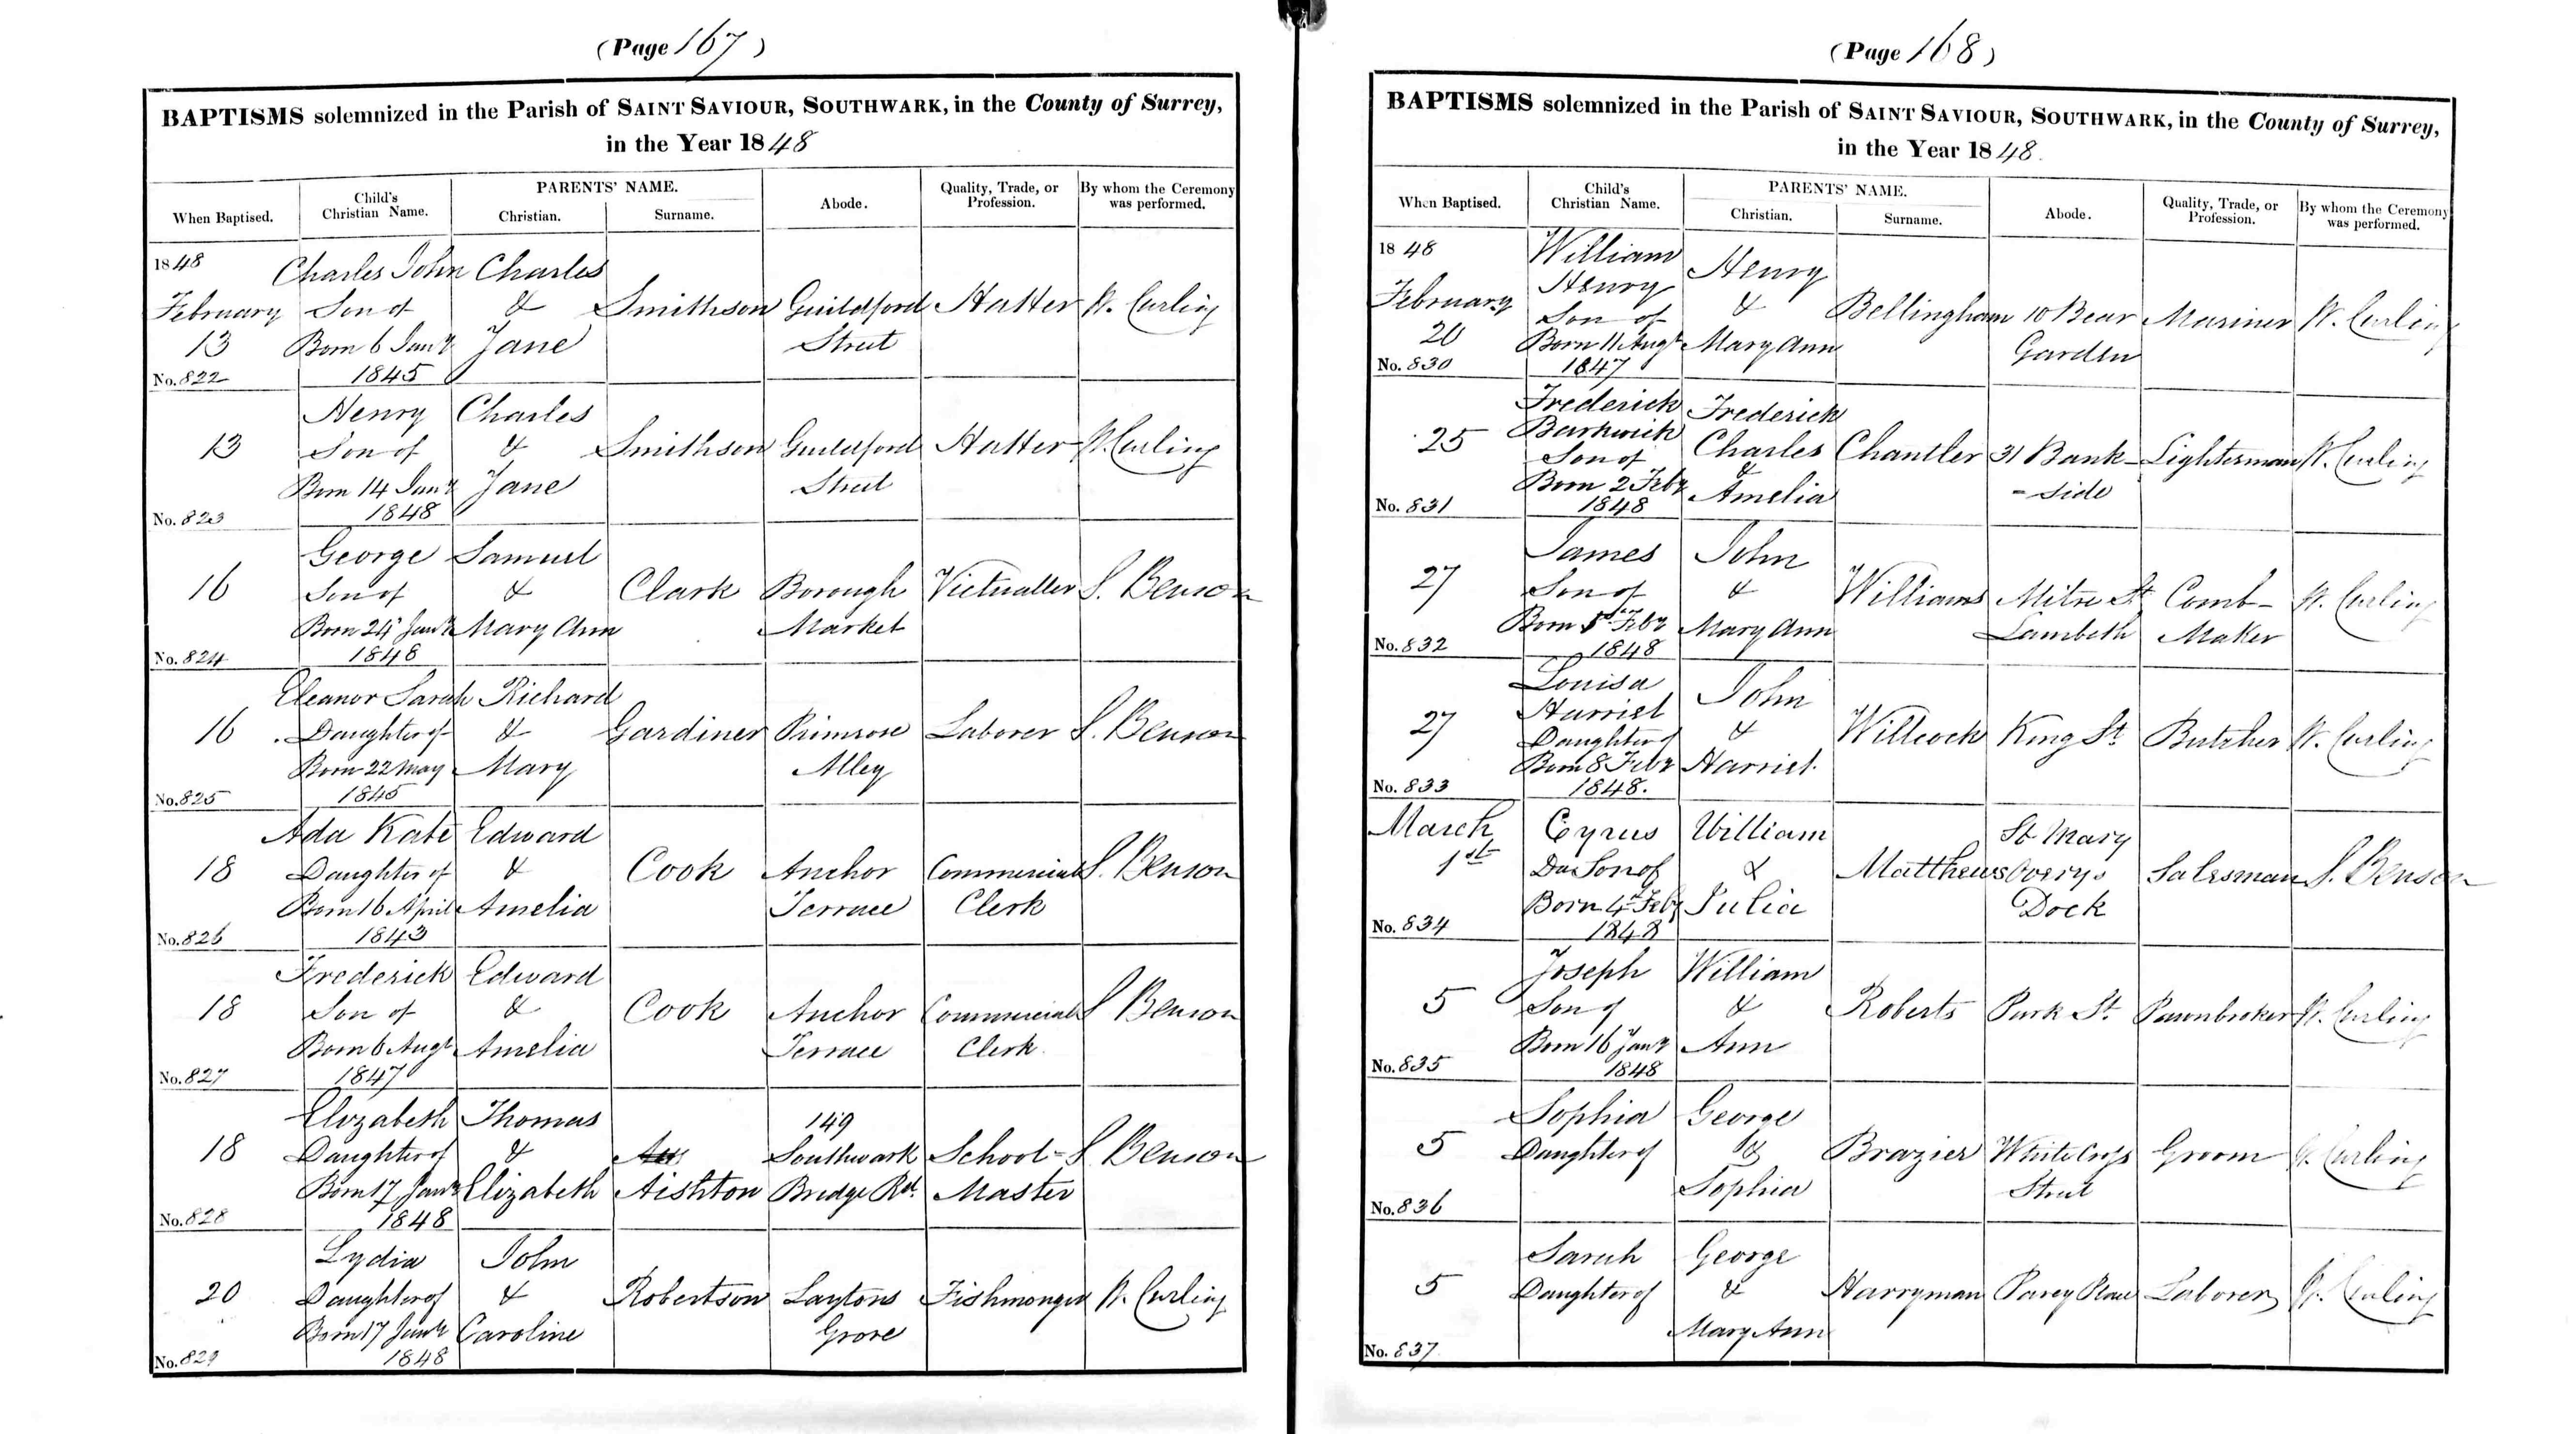 (Page 167)
BAPTISMS solemnized in the Parish of SAINT SAVIOUR, SOUTHWARK, in the County of Surrey,
in the Year 1848
When Baptised.
Child's Christian Name.
PARENTS' NAME.
Christian.
Surname.
Abode.
Quality, Trade, or Profession.
By whom the Ceremony was performed.
1848
February
13
No. 822
Charles John
Son of
Born 6 Jany
1845
Charles
&
Jane
Smithson
Guildford
Street
Hatter
W. Curling
13
No. 823
Henry
Son of
Born 14 Jany
1848
Charles
&
Jane
Smithson
Guildford
Street
Hatter
W. Curling
16
No. 824
George
Son of
Born 24 Jany
1848
Samuel
&
Mary Ann
Clark
Borough
Market
Victualler
S. Benson
16
No. 825
Eleanor Sarah
Daughter of
Born 22 May
1845
Richard
&
Mary
Gardiner
Primrose
Alley
Laborer
S. Benson
18
No. 826
Ada Kate
Daughter of
Born 16 April
1843
Edward
&
Amelia
Cook
Anchor
Terrace
Commercial
Clerk
S. Benson
18
No. 827
Frederick
Son of
Born 6 Augt
1847
Edward
&
Amelia
Cook
Anchor
Terrace
Commercial
Clerk
S Benson
18
No. 828
Elizabeth
Daughter of
Born 17 Jany
1848
Thomas
&
Elizabeth
Aishton
149
Southwark
Bridge Rd.
School-
Master
S Benson
20
No. 829
Lydia
Daughter of
Born 17 Jany
1848
John
&
Caroline
Robertson
Laytons
Grove
Fishmonger
W. Curling
(Page 168)
BAPTISMS solemnized in the Parish of SAINT SAVIOUR, SOUTHWARK, in the County of Surrey,
in the Year 1848.
When Baptised.
Child's Christian Name.
PARENTS' NAME.
Christian.
Surname.
Abode.
Quality, Trade, or Profession.
By whom the Ceremony was performed.
1848
February
20
No. 830
William
Henry
Son of
Born 11 Augt
1847
Henry
&
Mary Ann
Bellingham
10 Bear
Garden
Mariner
W. Curling
25
No. 831
Frederick
Barkwick
Son of
Born 2 Feby
1848
Frederick
Charles
&
Amelia
Chantler
31 Bank-
-side
Lighterman
W. Curling
27
No. 832
James
Son of
Born Feby
1848
John
&
Mary Ann
Williams
Mitre St
Lambeth
Comb-
Maker
W. Curling
27
No. 833
Louisa
Harriet
Daughter of
Born 8 Feby
1848.
John
&
Harriet.
Willcock
King St
Butcher
W. Curling
March
1st
No. 834
Cyrus
Son of
Born 4 Feby
1848
William
&
Julia
Matthews
St Mary
Overys
Dock
Salesman
S. Benson
5
No. 835
Joseph
Son of
Born 16 Jany
1848
William
&
Ann
Roberts
Park St.
Pawnbroker
W. Curling
5
No. 836
Sophia
Daughter of
George
&
Sophia
Brazier
White Cross
Street
Groom
W. Curling
5
No. 837
Sarah
Daughter of
George
&
Mary Ann
Harryman
Place
Laborer
W. Curling